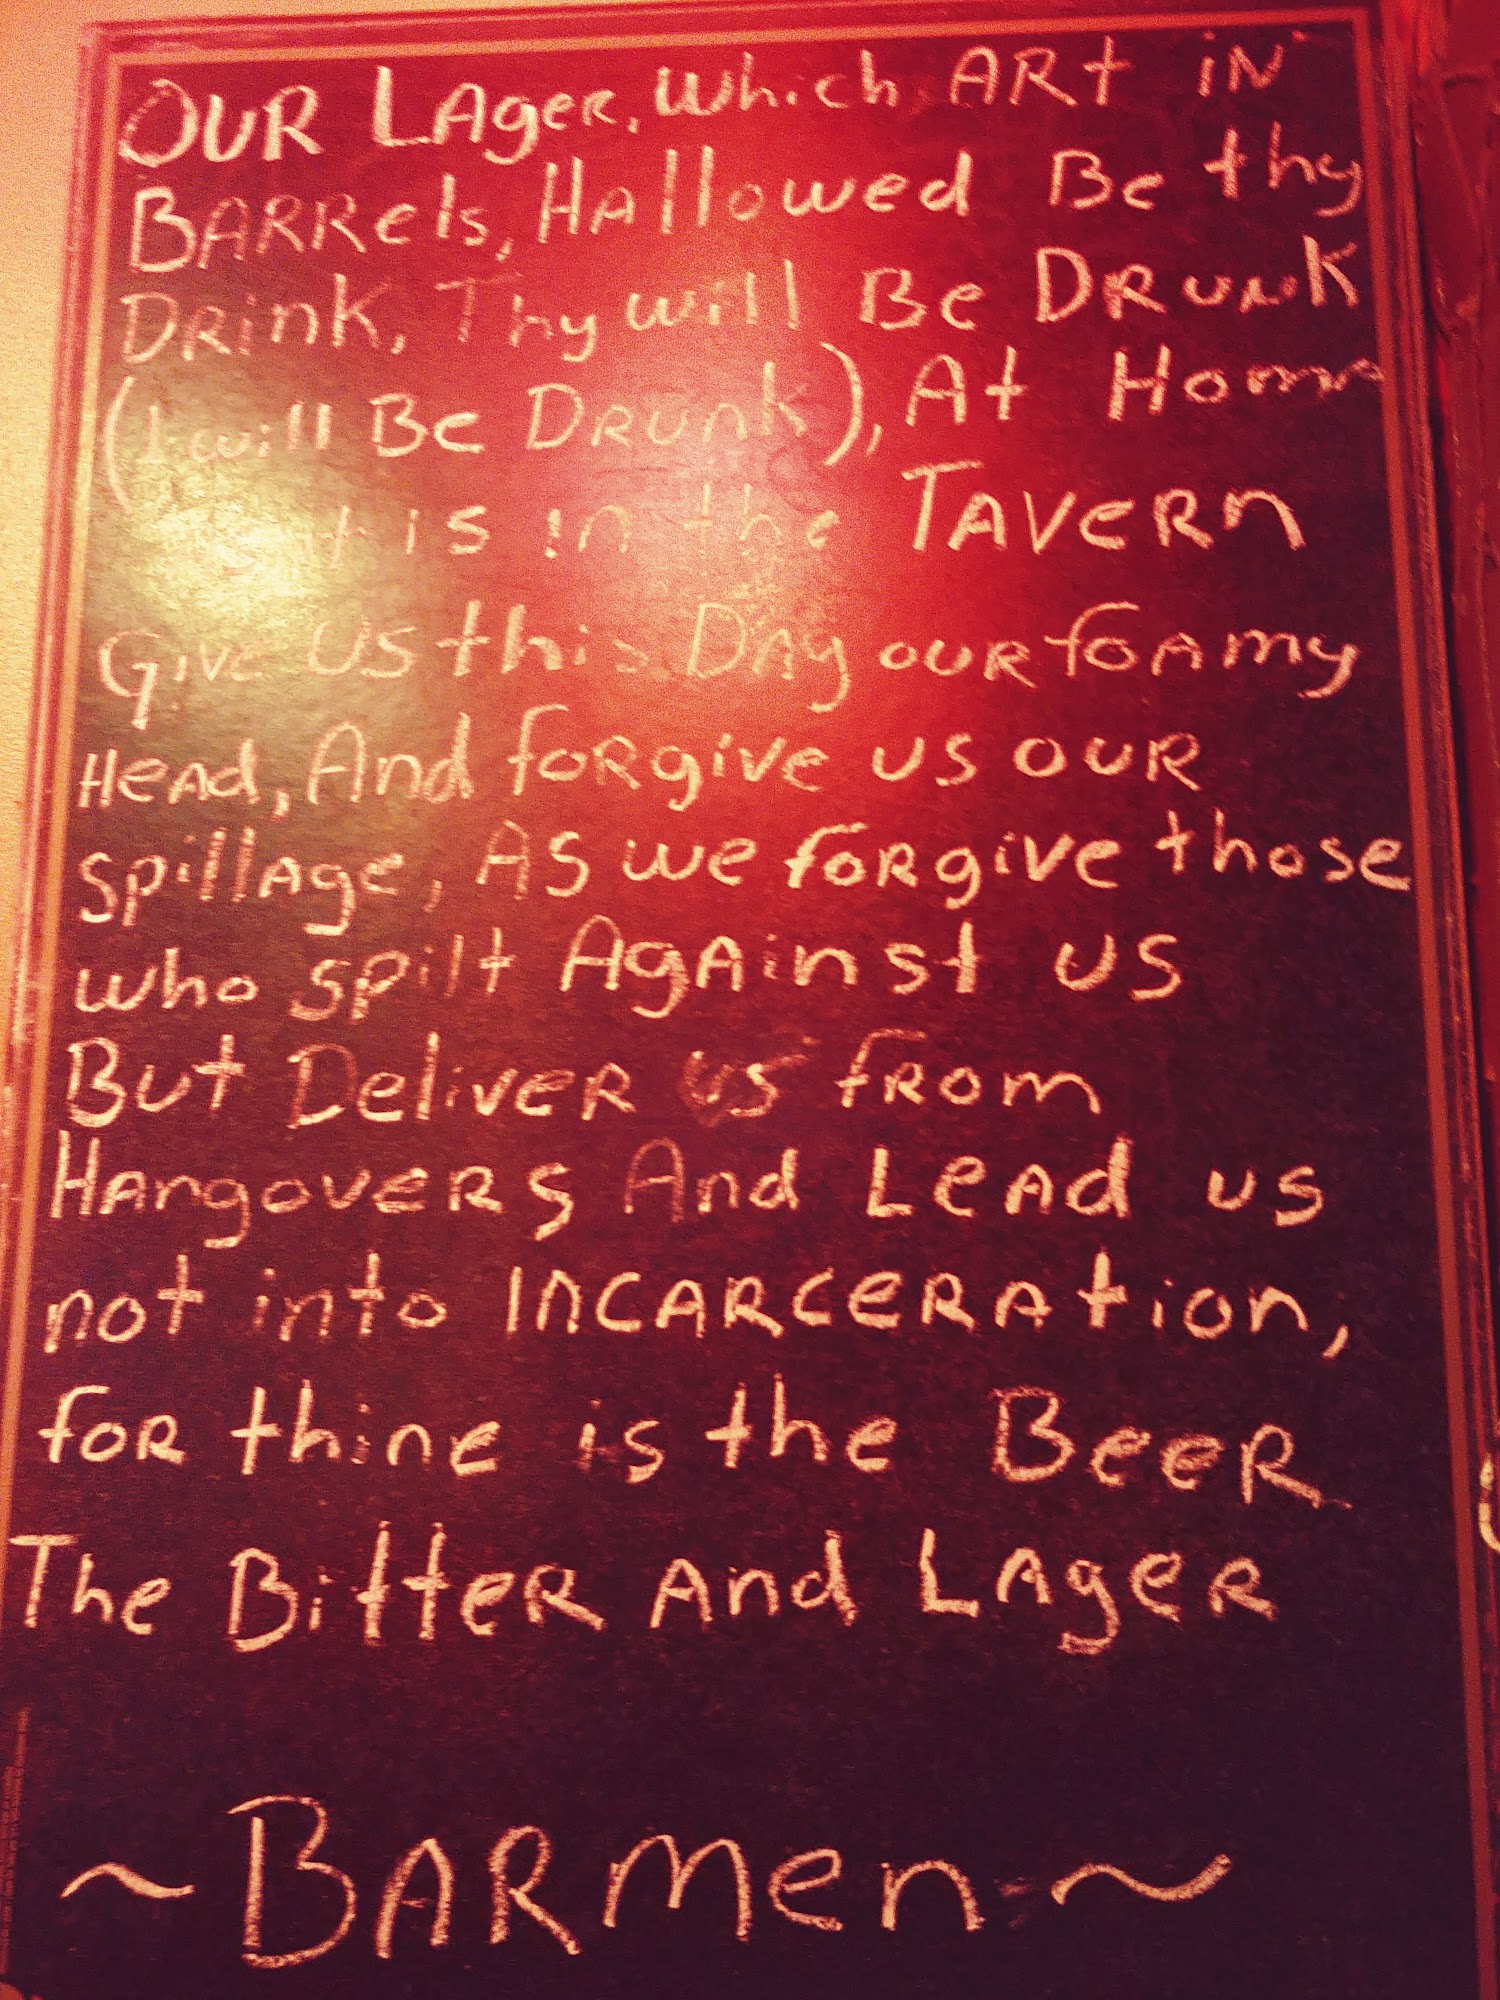 OUR LAgeR, Which ARt iN
BARRels, HAllowed Be thy
DRink, Thy will Be DRunK
(I will Be DRunk), At Home
is in the TAVeRn
Give US this DAy ouR foAmy
HeAd, And foRgive us ouR
SpillAge, As we foRgive those
who spilt AgAinst us
But DeliveR us fRom
HAngoveRs And LeAd us
not into INCARCeRAtion,
foR thine is the BeeR
The BitteR And LAgeR
~BARmen~